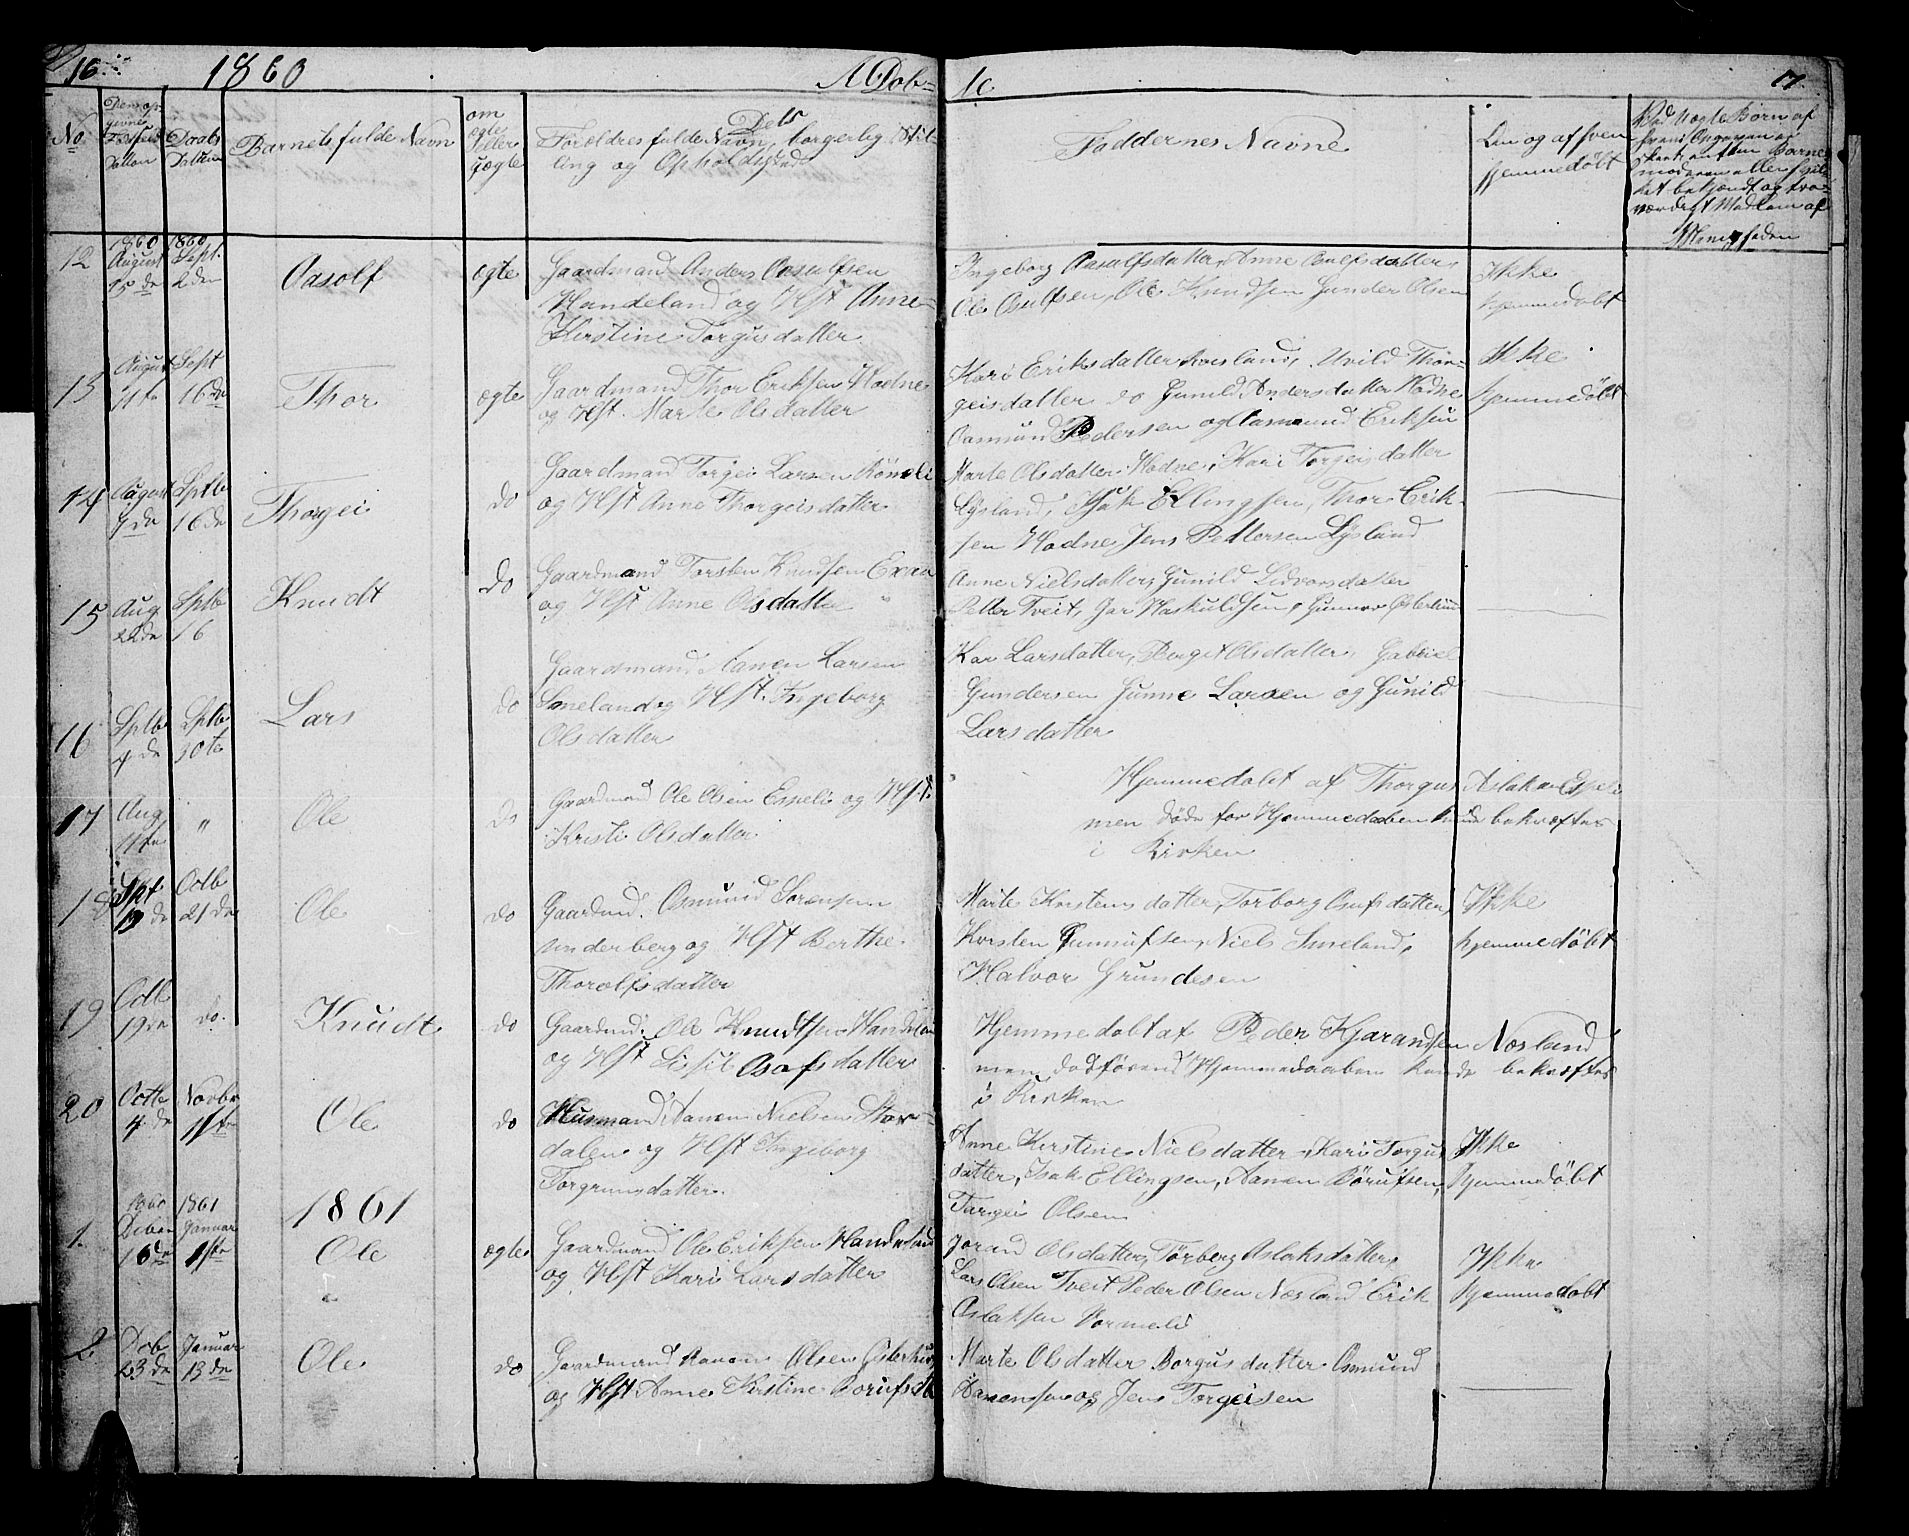 16
1860
A. Døb=
te
17
No
Den op-
givne
Fødsels
Datten
Daabs
Datten
Barnets fulde Navn
om
ægte
eller
uægte
Dets
Forældres fulde Navn, borgerlig Stil-
ling og Opholdssted
Faddernes Navne
Om og af hvem
hjemmedøbt
Ved Uægte Børn af
hvem Opgaven er
skeet, enten Barne-
moderen eller
bekjændt og tro-
værdigt Medlem af
Menigheden
12
1860
August
15de
1860
Sept.
2den
Aasolf
ægte
Gaardmand Anders Aasulfsen
Handeland og Hst Anne
Kirstine Torgusdatter
Ingeborg Aasulfsdatter, Anne Osulfsdatter
Ole Osulfsen, Ole Knudsen Gunder Olsen
Ikke
hjemmedøbt
13
August
11te
Sept
16de
Thor
ægte
Gaardmand Thor Eriksen Hodne
og Hst. Marte Olsdatter
Kari Eriksdatter Røisland, Thor-
geisdatter do Gunild Andersdatter Hodne
Aasmund Pedersen og Aasmund Eriksen
Ikke
hjemmedøbt
14
August
7de
Sptbr
16de
Thorgei
do
Gaardmand Torgei Larsen
og Hst Anne Thorgeisdatter
Marte Olsdatter Hodne, Kari Torgeisdatter
Lysland, Isak Ellingsen, Thor Erik-
sen Hodne Jens Pettersen Lysland
15
Aug
22de
Sptb
16
Knudt
do
Gaardmand Torsten Knudsen
og Hst Anne Olsdatter
Anne Nielsdatter, Gunild Lidvorsdatter
Petter Tveit, Haskuldsen, Gunnar Østerhus
16
Sptb
4de
Sptb
30te
Lars
do
Gaardmand Aanen Larsen
Smeland og Hst. Ingeborg
Olsdatter
Kari Larsdatter, Berget Olsdatter, Gabriel
Gundersen Gunne Larsen og Gunild
Larsdatter
17
Aug
11te
"
Ole
do
Gaardmand Ole Olsen Espeli og Hst.
Kristi Olsdatter
Hjemmedøbt af Thorgus Aslaksen Espeli
men døde før Hjemmedaaben kunde bekræftes
i Kirken
18
Spt
13de
Octb
21de
Ole
do
Gaardmd. Osmund Sørensen
underberg og Hst Berthe
Thorolfsdatter
Marte Korstensdatter, Torborg Osufsdatter,
Korsten Gunnufsen, Niels Smeland,
Halvor Grundesen
Ikke
hjemmedøbt
19
Octb
19de
do.
Knudt
do
Gaardmd. Ole Knudtsen
og Hst Sissil Osofsdatter
Hjemmedøbt af Peder Kjørandsen Næsland
men død førend Hjemmedaaben kunde bekræftes
i Kirken
20
Octb
4de
Novbr
11te
Ole
do
Husmand Aanen Nielsen Stor-
dalen og Hst Ingeborg
Torgrimsdatter.
Anne Kirstine Nielsdatter, Kari Torgus
datter, Isak Ellingsen, Aanen Børufsen,
Torgei Olsen
Ikke
hjemmedøbt
1861
1.
1860
Decbr
16de
1861
Januar
1ste
Ole
ægte
Gaardmand Ole Eriksen Handeland
og Hst Kari Larsdatter
Joran Olsdatter, Tørberg Aslaksdatter,
Lars Olsen Tveit Peder Olsen Næsland Erik
Aslaksen Vormeli
Ikke
hjemmedøbt
2.
Dcb
23de
Januar
13de
Ole
do
Gaardmand Aanen Olsen Østerhus
og Hst Anne Kirstine Børufsdtr
Marte Olsdatter Borgusdatter Osmund
Aanensen og Jens Torgeisen